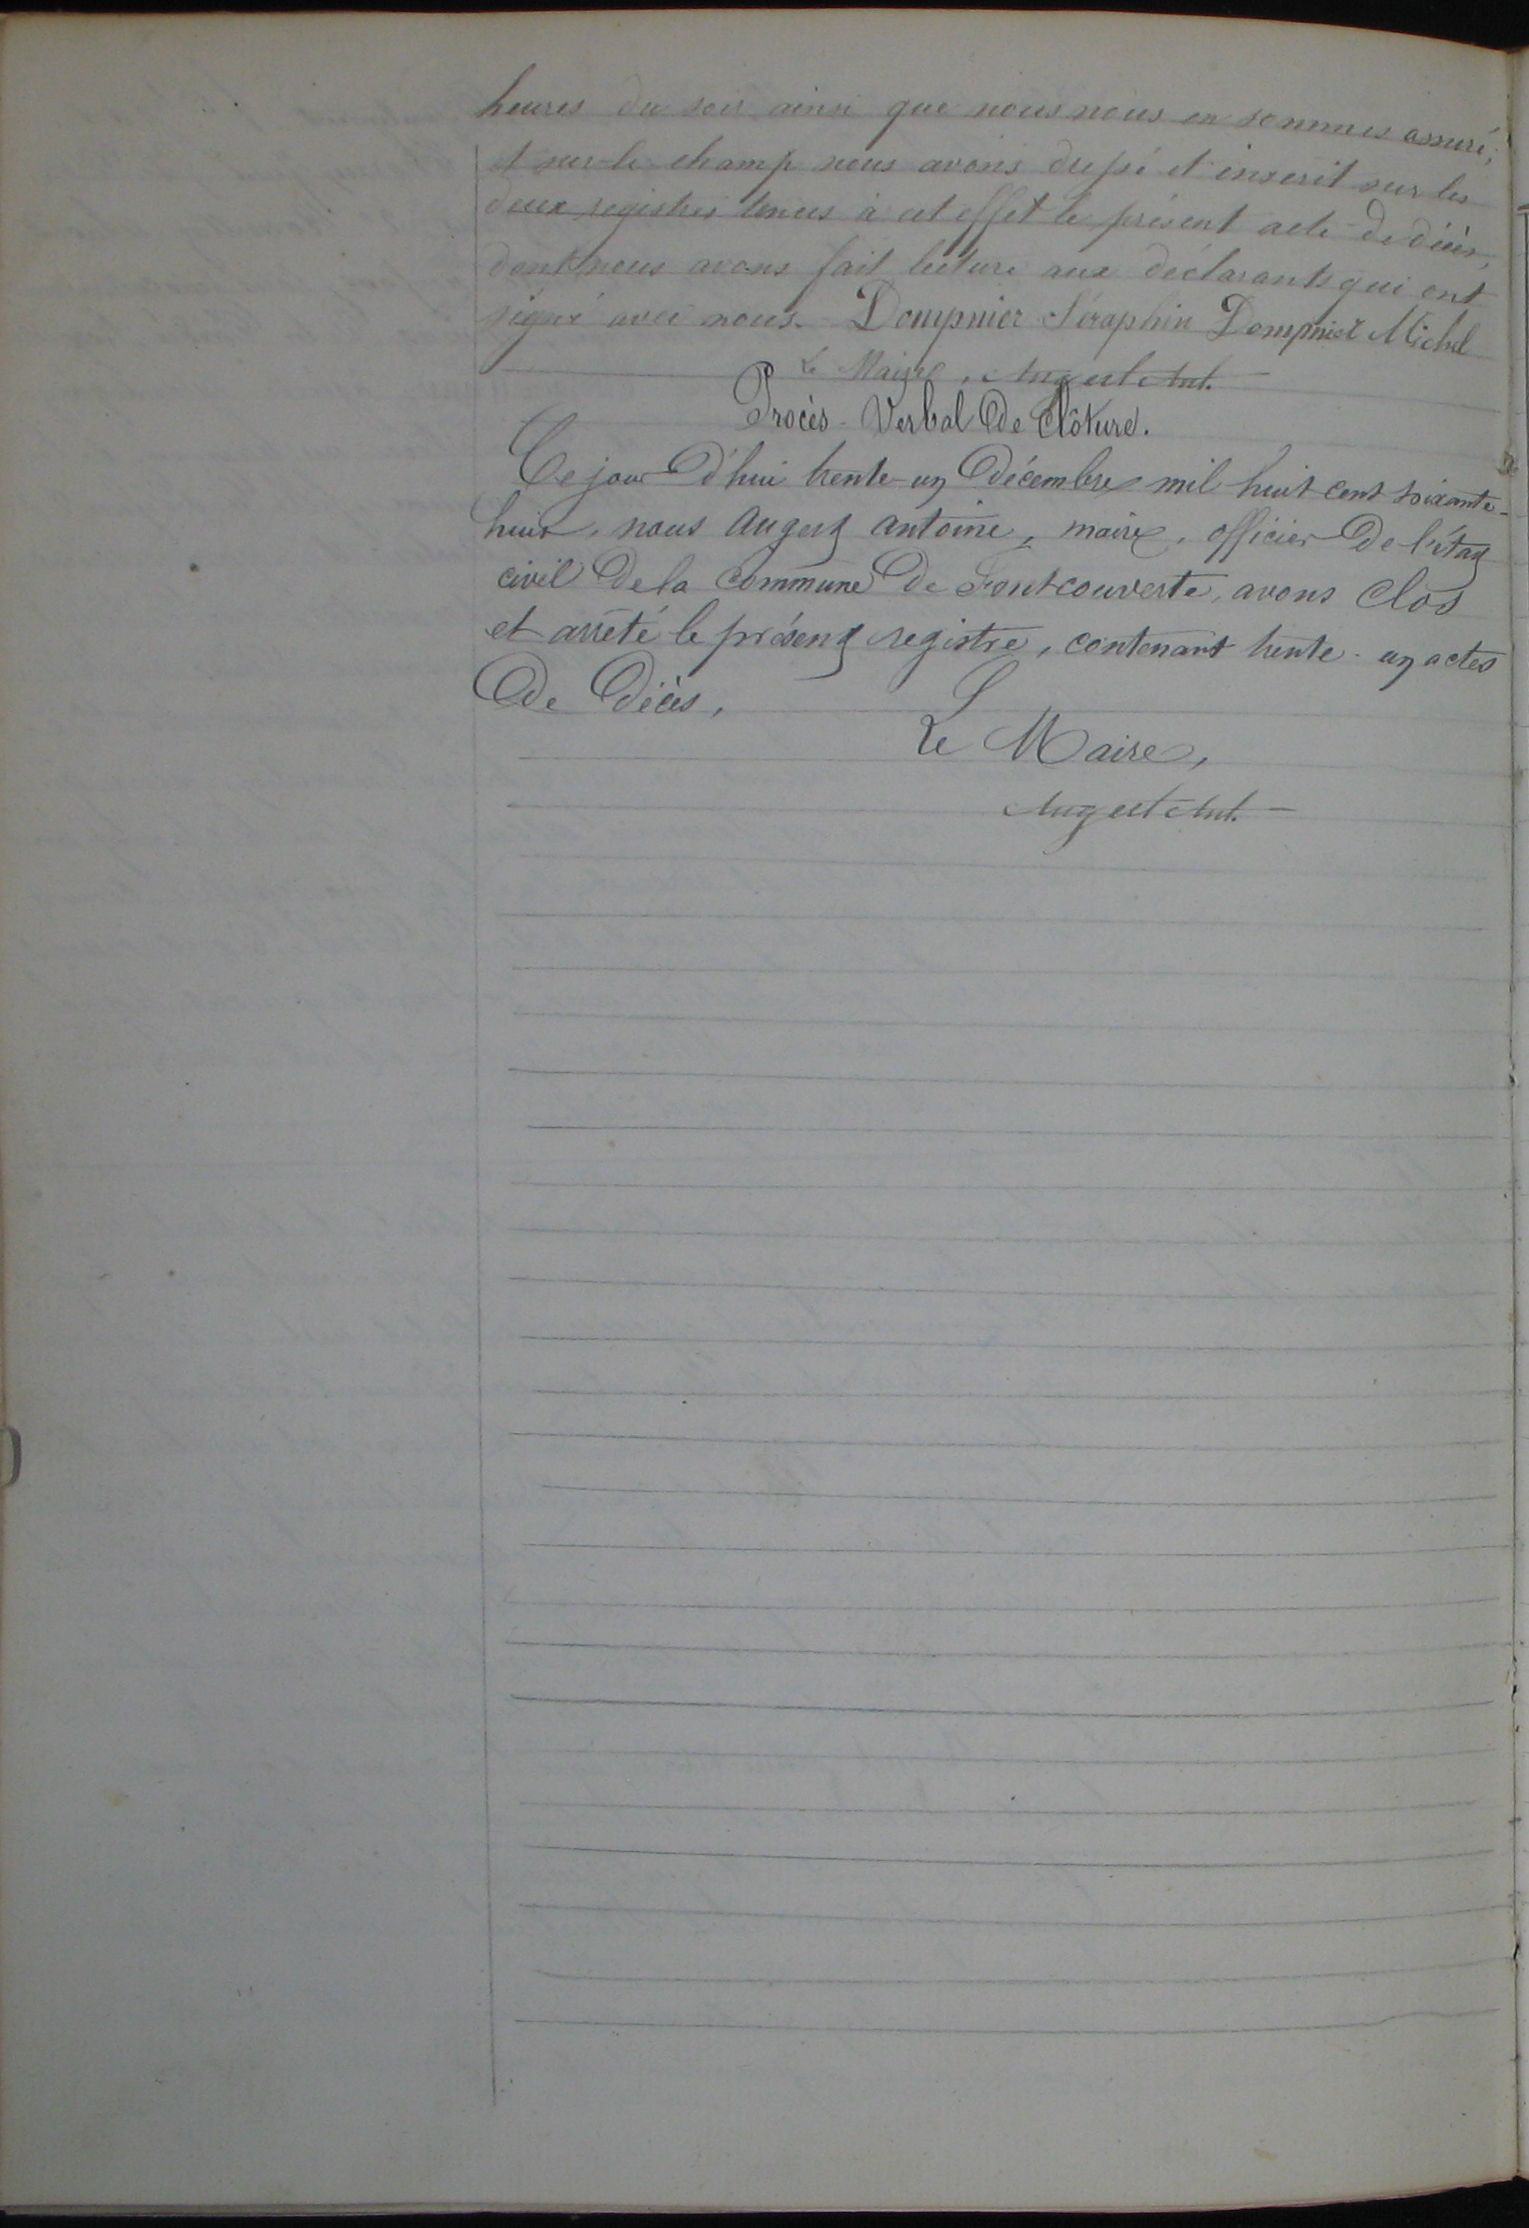 heures du soir ainsi que nous nous en sommes assuré;
et sur-le-champ nous avons dressé et inscrit sur les
deux registres tenus à cet effet le présent acte de décès,
dont nous avons fait lecture aux déclarants qui ont
signé avec nous. Dompnier Séraphin Dompnier Michel
Le Maire, Augert Ant.
Procès-Verbal de Clôture.
Ce jour d'hui trente-un Décembre mil huit cent soixante-
huit, nous Augert Antoine, maire, officier de l'état
civil de la Commune de Fontcouverte, avons Clos
et arrêté le présent registre, contenant trente-un actes
de Décès,
Le Maire,
Augert Ant.